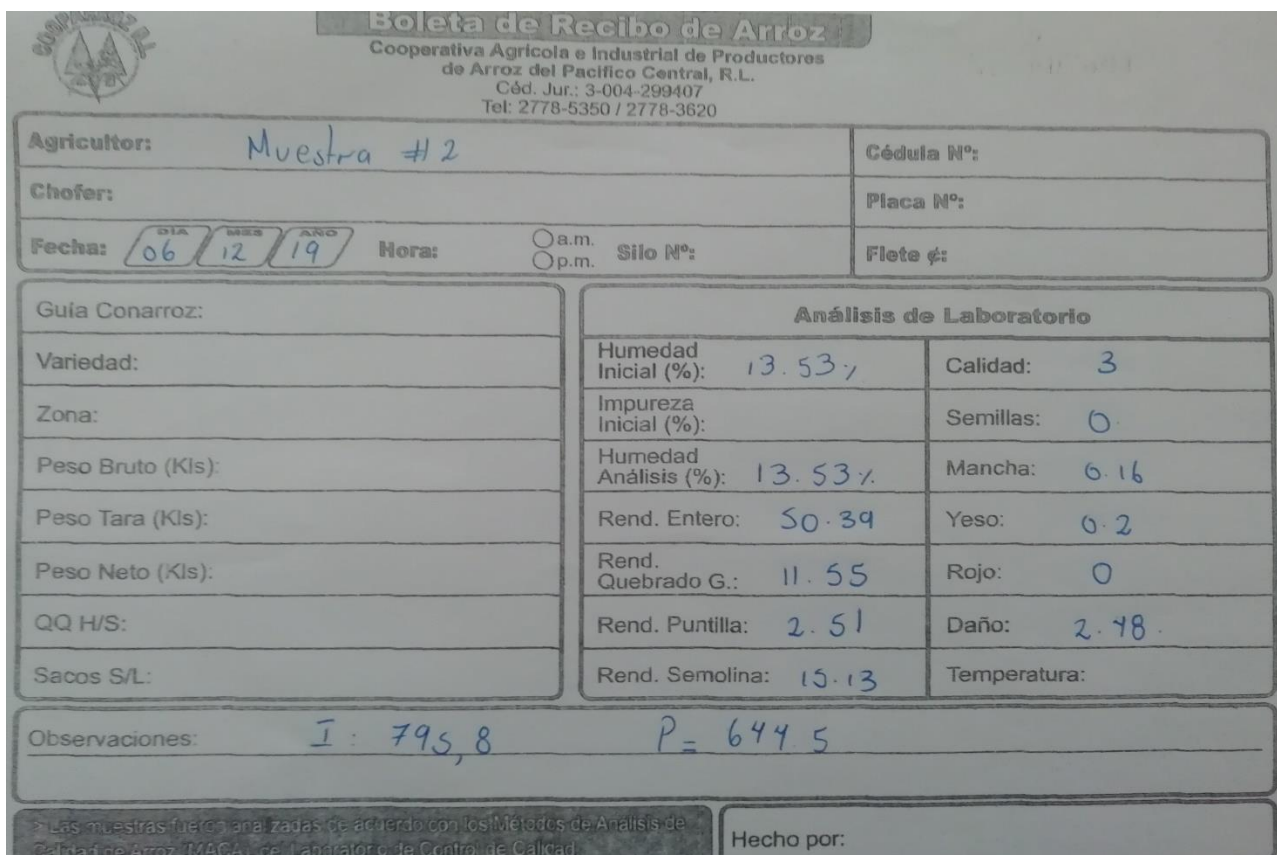 COOPARROZ R.L.
Boleta de Recibo de Arroz
Cooperativa Agrícola e Industrial de Productores
de Arroz del Pacífico Central, R.L.
Céd. Jur.: 3-004-299407
Tel: 2778-5350 / 2778-3620
Agricultor: Muestra #2
Cédula Nº:
Chofer:
Placa Nº:
Fecha: DIA 06 MES 12 AÑO 19 Hora: a.m. p.m. Silo Nº:
Flete ¢:
Guía Conarroz:
Variedad:
Zona:
Peso Bruto (Kls):
Peso Tara (Kls):
Peso Neto (Kls):
QQ H/S:
Sacos S/L:
Análisis de Laboratorio
Humedad Inicial (%): 13.53%
Calidad: 3
Impureza Inicial (%):
Semillas: 0
Humedad Análisis (%): 13.53%
Mancha: 0.16
Rend. Entero: 50.39
Yeso: 0.2
Rend. Quebrado G.: 11.55
Rojo: 0
Rend. Puntilla: 2.51
Daño: 2.48
Rend. Semolina: 15.13
Temperatura:
Observaciones: I: 795,8 P= 644.5
> Las muestras fueron analizadas de acuerdo con los Métodos de Análisis de
Calidad de Arroz (MACA) del Laboratorio de Control de Calidad
Hecho por: